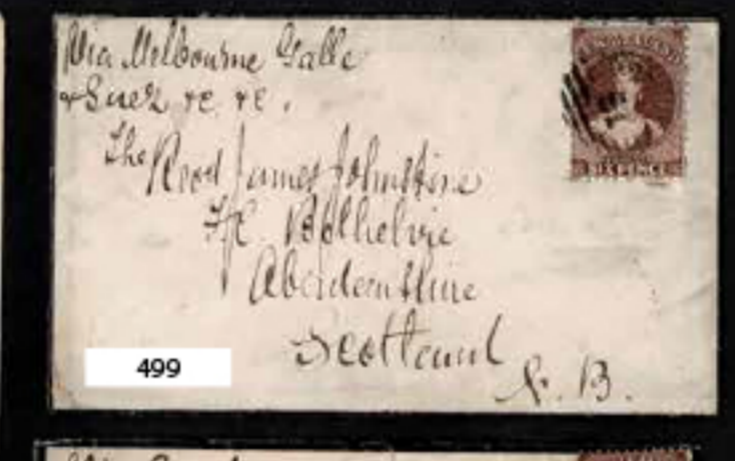 Via Melbourne Galle
& Suez &c &c.
The Revd James Johnstone
F.C. Belhelvie
Aberdeenshire
Scotland
N. B.
NEW ZEALAND
SIX PENCE
499